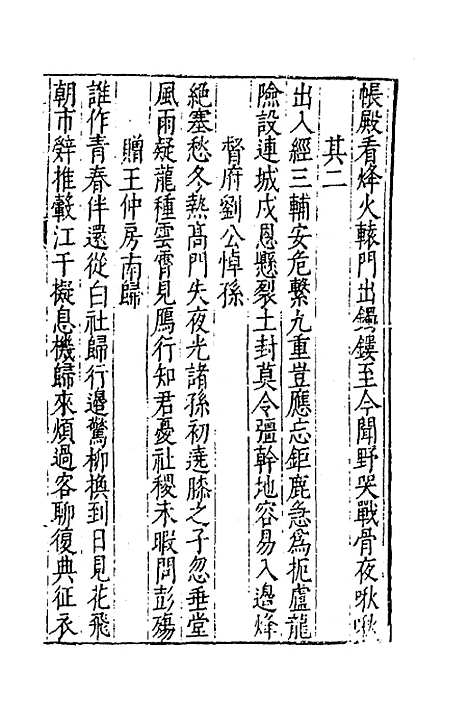 帳殿看烽火轅門出鐲鏤至今聞野哭戰骨夜啾啾
其二
出入經三輔安危繫九重豈應忘鉅鹿急為扼盧龍
險設連城戍恩懸裂土封莫令彊幹地容易入邊烽
督府劉公悼孫
絕塞愁冬熱高門失夜光諸孫初遶膝之子忽垂堂
風雨疑龍種雲霄見鴈行知君憂社稷未暇問彭殤
贈王仲房南歸
誰作青春伴還從白社歸行邊驚柳換到日見花飛
朝市辭推轂江干擬息機歸來煩過客聊復典征衣